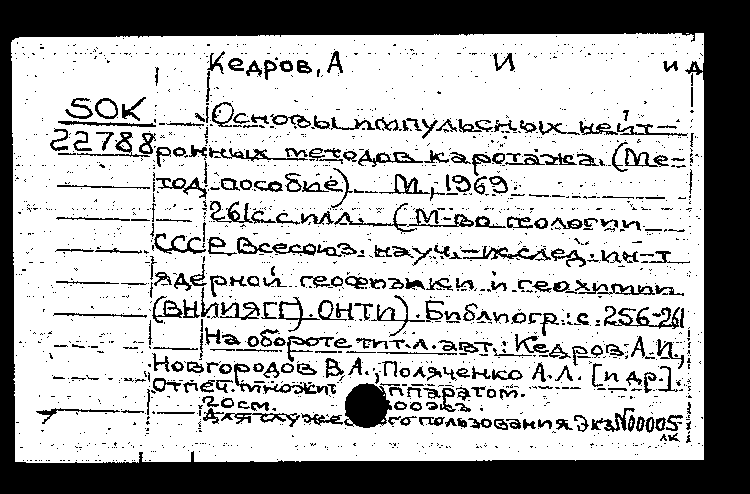 Кедров, А И и д
50К
22788
Основы импульсных нейт-
ронных методов каротажа. (Ме-
тод. пособие). М., 1969.
261с. с илл. (М-во геологии
СССР. Всесоюз. науч.-исслед. ин-т
ядерной геофизики и геохимии
(ВНИИЯГГ). ОНТИ). Библиогр.: с. 256-261
На обороте тит. л. авт.: Кедров А.И.,
Новгородов В.А., Поляченко А.Л. [и др].
Отпеч. множит ппаратом.
20см. 00экз.
Для служеб ого пользования. Экз №00005
ЛК